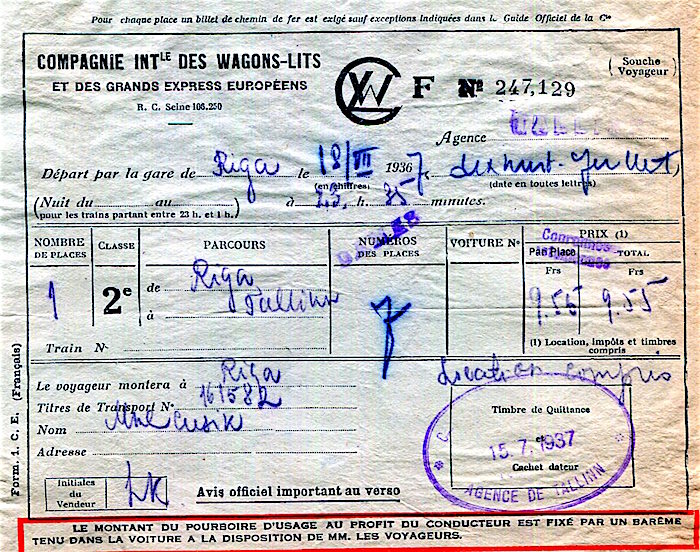 Pour chaque place un billet de chemin de fer est exigé sauf exceptions indiquées dans le Guide Officiel de la Cie
COMPAGNIE INTLE DES WAGONS-LITS
ET DES GRANDS EXPRESS EUROPÉENS
R. C. Seine 108.250
F No 247,129
(Souche Voyageur)
Agence
Départ par la gare de Riga le 18/VII 1936 7 (dix huit Juillet)
(en chiffres) (date en toutes lettres)
(Nuit du au ) à 23 h. 35 minutes.
(pour les trains partant entre 23 h. et 1 h.)
NOMBRE DE PLACES
CLASSE
PARCOURS
NUMÉROS DES PLACES
VOITURE No
PRIX (1)
Couronnes
Par Place TOTAL
Frs Frs
1
2e
de Riga
à Tallinn
7
9.55 9.55
Train No
(1) Location, impôts et timbres compris
Le voyageur montera à Riga
Titres de Transport No 161582
Nom Mne Cusik
Adresse
Location compris
Timbre de Quittance
et
Cachet dateur
15.7.1937
AGENCE DE TALLINN
Initiales du Vendeur
Avis officiel important au verso
Form. 1. C. E. (Français)
LE MONTANT DU POURBOIRE D'USAGE AU PROFIT DU CONDUCTEUR EST FIXÉ PAR UN BARÊME
TENU DANS LA VOITURE A LA DISPOSITION DE MM. LES VOYAGEURS.